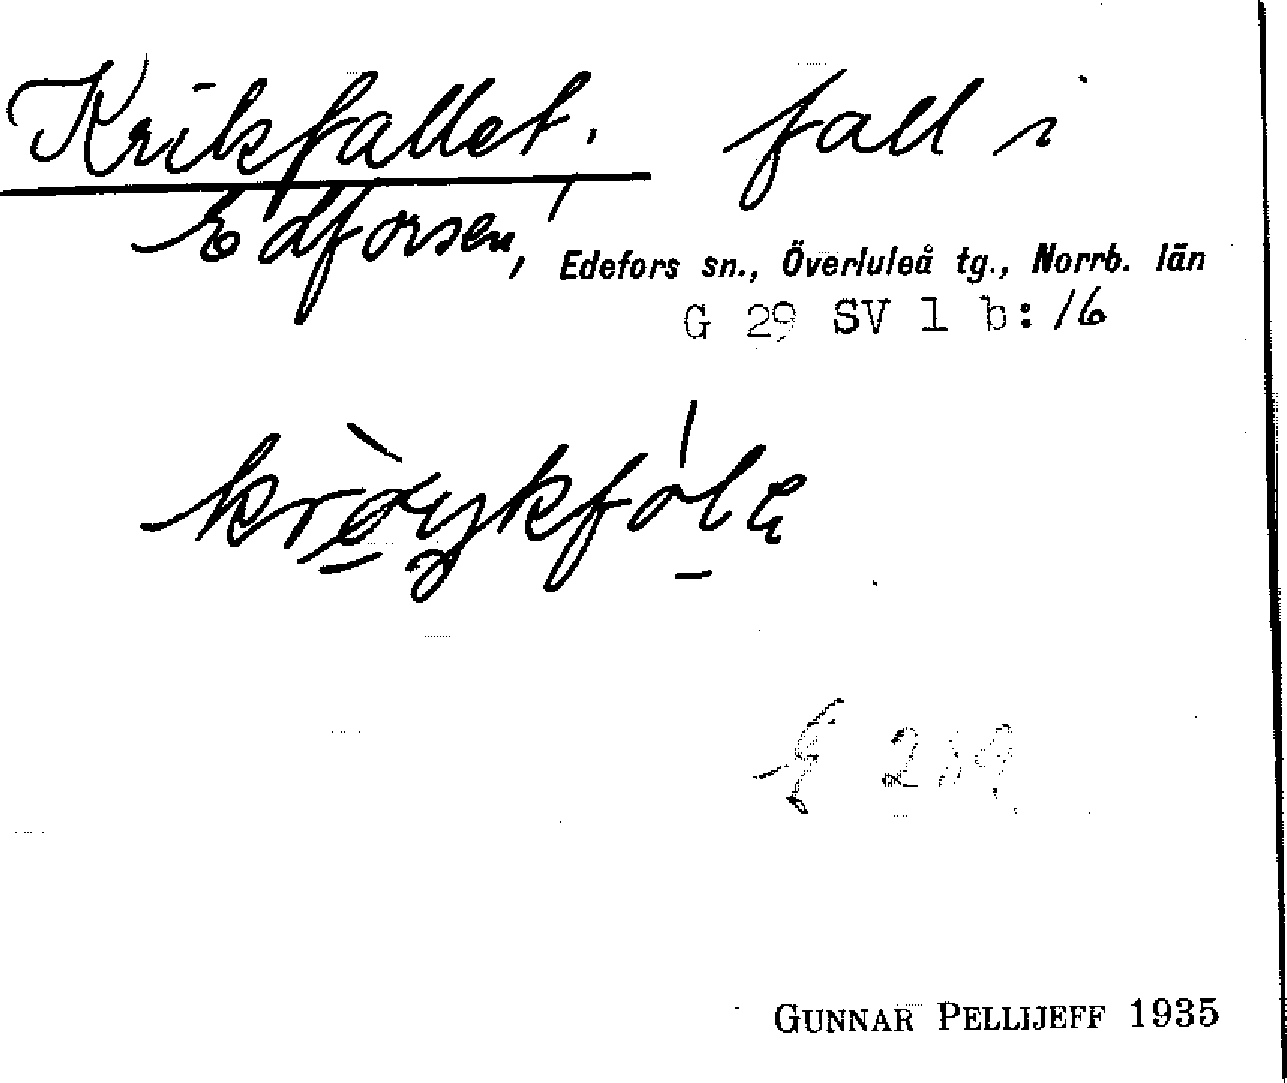 Krikfallet. fall i
Edforsen, Edefors sn., Överluleå tg., Norrb. län
G 29 SV 1 b: 16
GUNNAR PELLIJEFF 1935